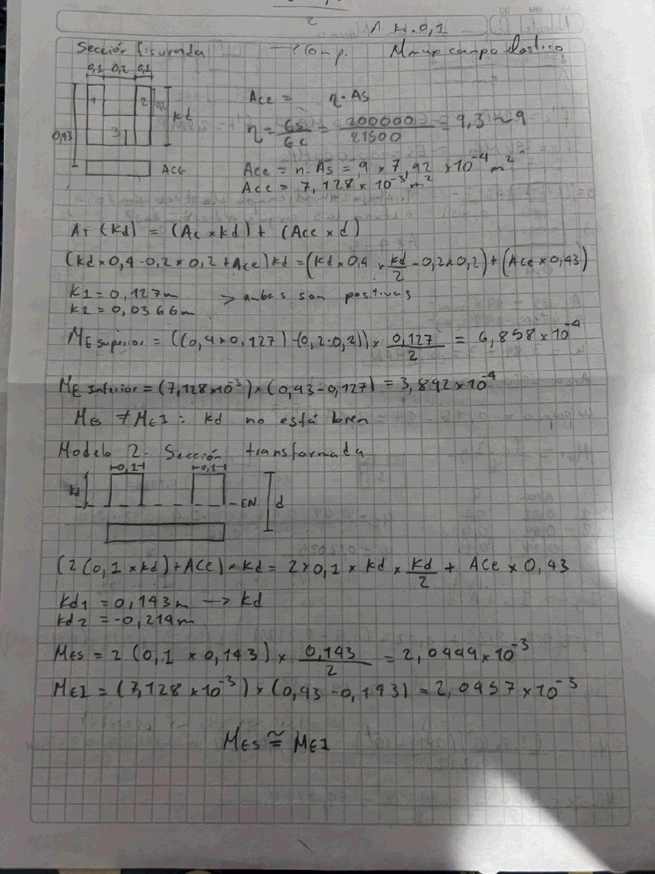 2
1 kd.0,1
Sección fisurada
Mmax campo elastico
0,1 0,2 0,1
1 2 kd
0,43
3
ACE
Ace = η·As
η = Es/Ec = 200000/21500 = 9,3 ~ 9
Ace = n·As = 9 x 7,92 x 10⁻⁴ m²
Ace = 7,128 x 10⁻³ m²
AT (kd) = (Ac x kd) + (Ace x d)
(kd x 0,4 - 0,2 x 0,2 + Ace) kd = (kd x 0,4 x kd/2 - 0,2 x 0,2) + (Ace x 0,43)
K1 = 0,127m > ambas son positivas
K2 = 0,0366m
ME superior = ((0,4 x 0,127) - (0,2·0,2)) x 0,127/2 = 6,858 x 10⁻⁴
ME Inferior = (7,128 x 10⁻³) x (0,43 - 0,127) = 3,892 x 10⁻⁴
MES ≠ MEI : kd no está bien
Modelo 2- Sección transformada
0,1 0,1
kd EN d
(2(0,1 x kd) + ACE) x kd = 2 x 0,1 x kd x kd/2 + ACE x 0,43
kd1 = 0,143m → kd
kd2 = -0,214m
MES = 2 (0,1 x 0,143) x 0,143/2 = 2,0449 x 10⁻³
MEI = (7,128 x 10⁻³) x (0,43 - 0,143) = 2,0457 x 10⁻³
MES ≅ MEI